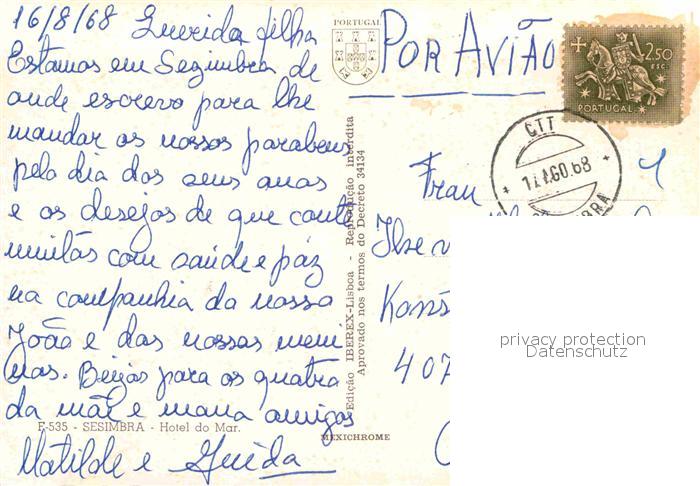 16/8/68 Querida filha
Estamos em Sezimbra de
onde escrevo para lhe
mandar os nossos parabens
pelo dia dos seus anos
e os desejos de que conte
muitos com saúde e paz
na companhia da nossa
João e das nossas meni
nas. Beijos para os quatro
da mãe e mana amigas
Matilde e Guida
F-535 - SESIMBRA - Hotel do Mar.
MEXICHROME
Edição IBEREX-Lisboa - Reprodução interdita
Aprovado nos termos do Decreto 34134
PORTUGAL
POR AVIÃO
2$50
ESC
PORTUGAL
CTT
17 AGO.68
Frau
Ilse
Kons
407
privacy protection
Datenschutz